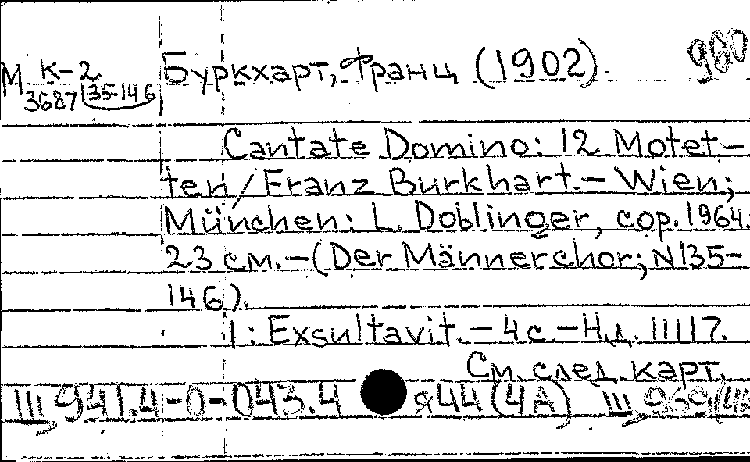 980
М К-2 Буркхарт, Франц (1902).
3687/35-146
Cantate Domino: 12 Motet-
ten/Franz Burkhart.— Wien;
München: L. Doblinger, cop. 1964.
23 см.—(Der Männerchor; N135-
146).
1: Exsultavit.—4с.—Н.д. 11117.
См. след. карт.
Ш 941.4-0-043.4 я44(4А) Ш 969(4А